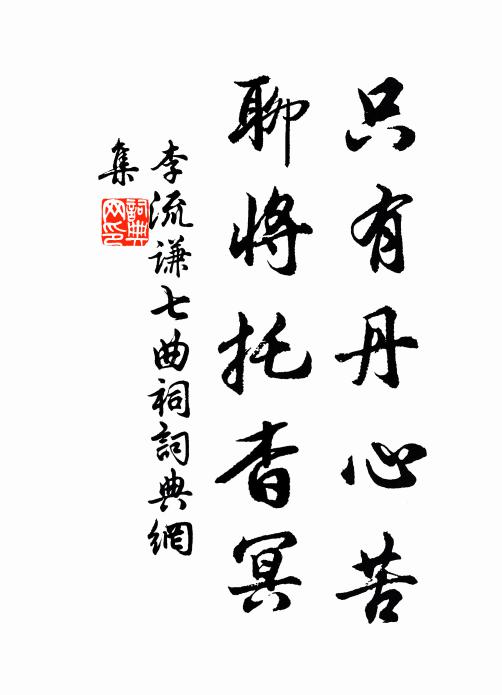 只有丹心苦
聊將托杳冥
李流謙七曲祠詞典網
集
詞典
网印